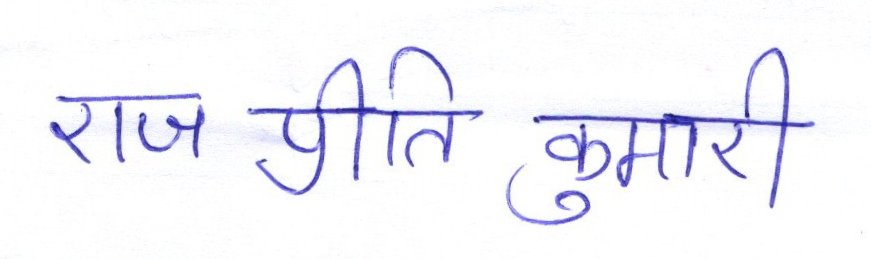 राज प्रीति कुमारी